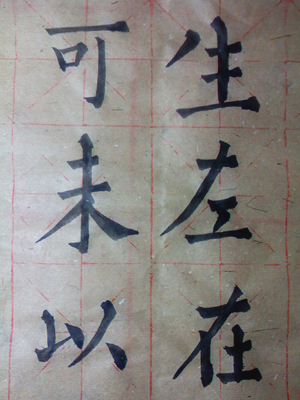 生左在
可未以